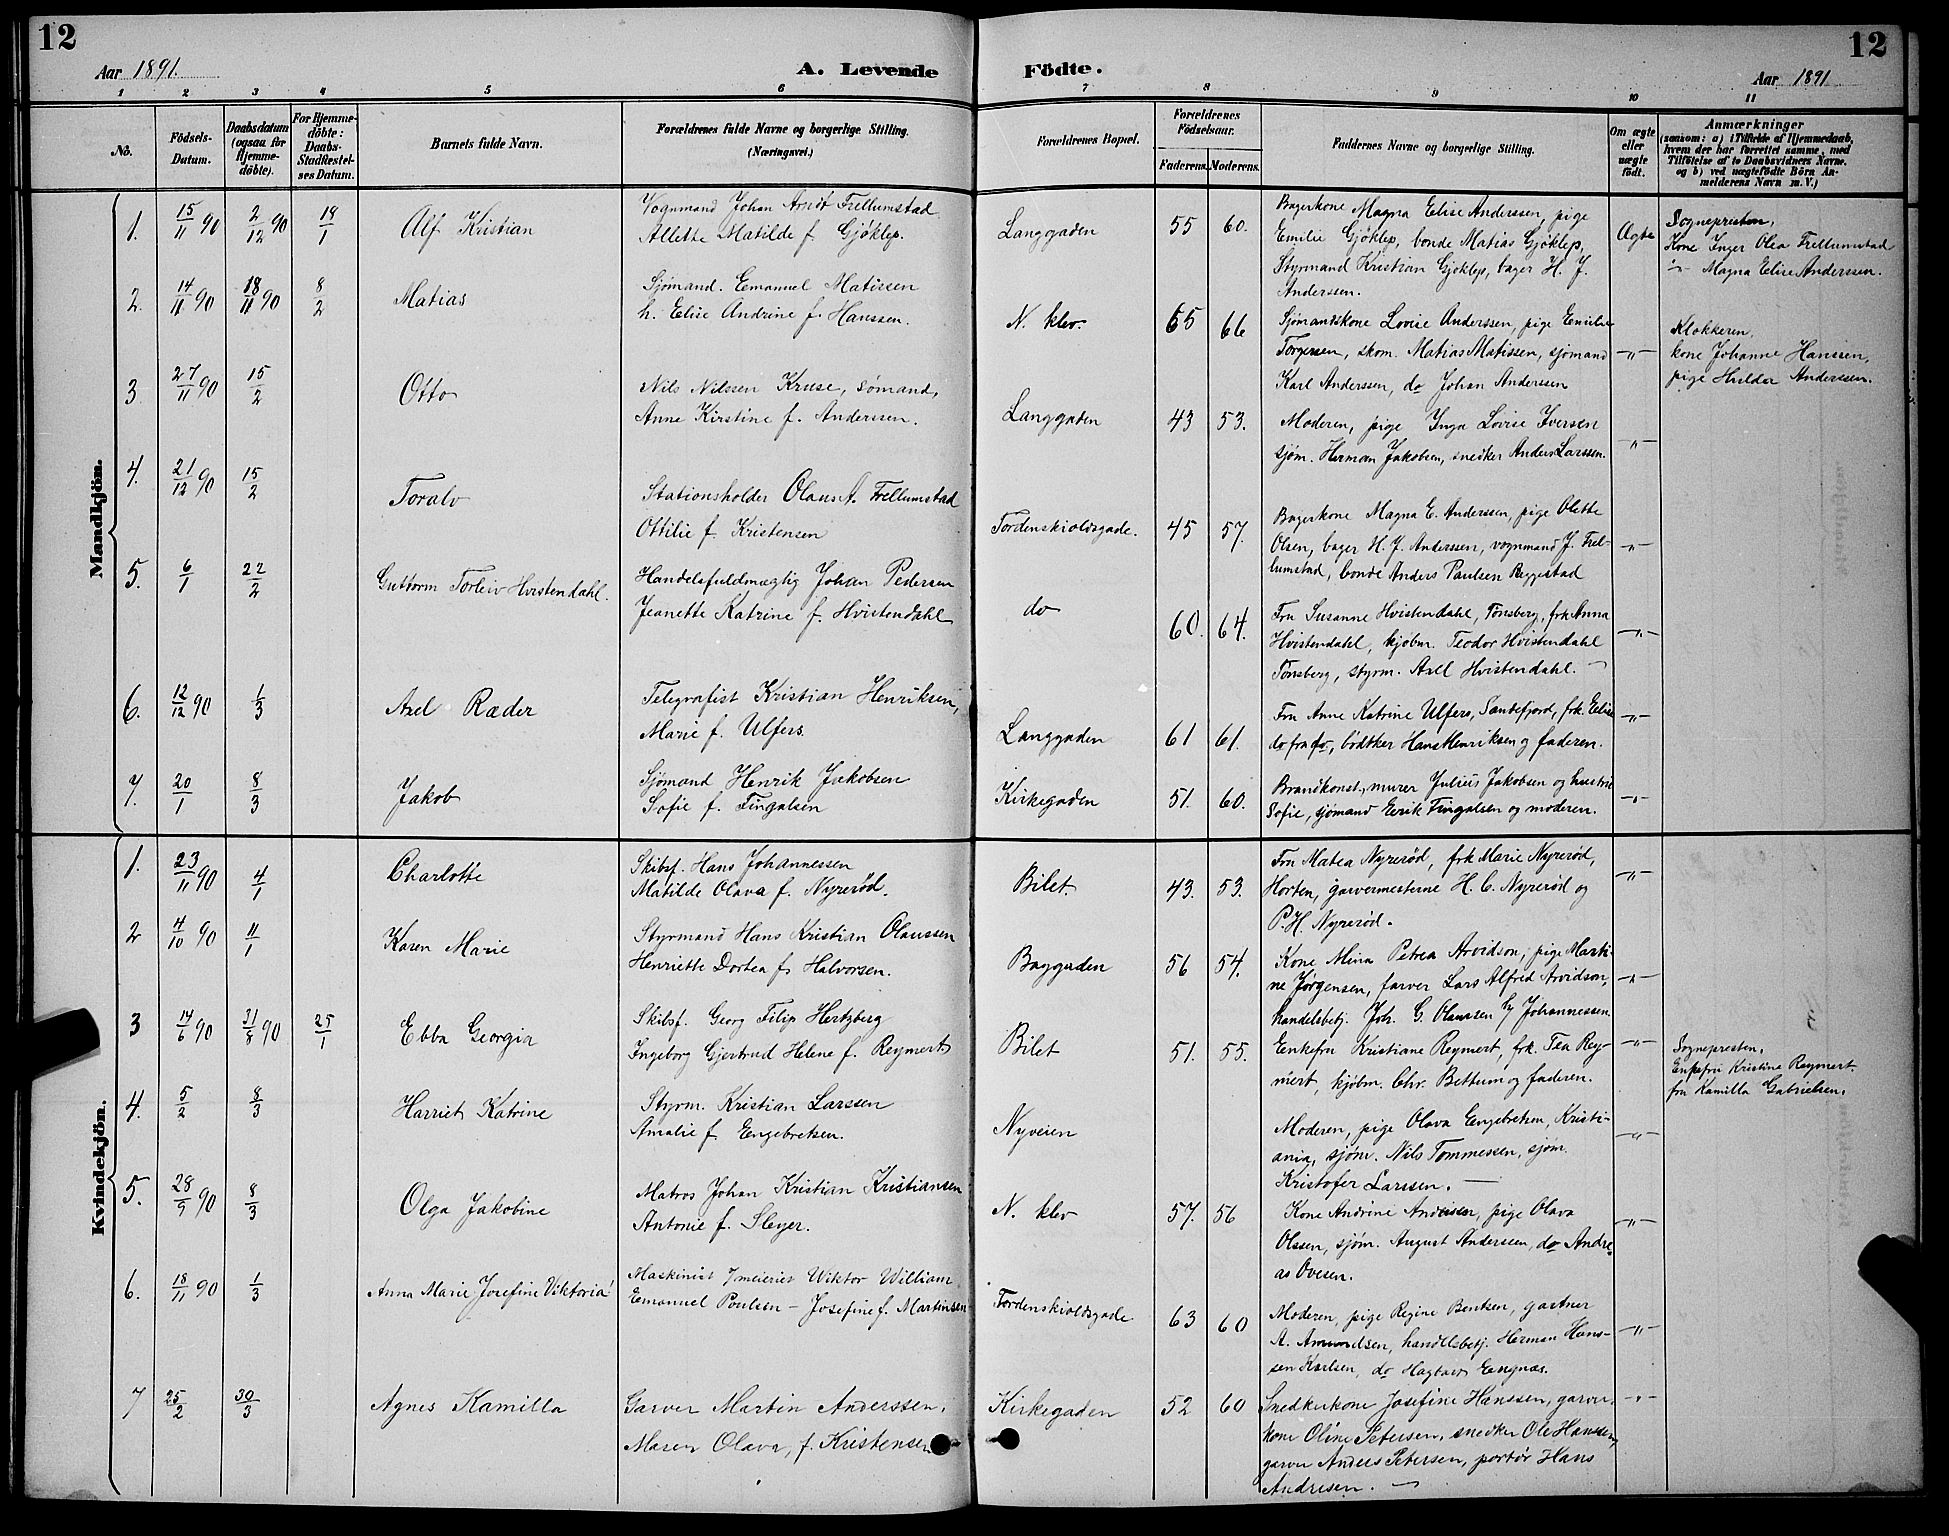 12
12
Aar 1891.
A. Levende Födte.
Aar 1891
1 2 3 4 5 6 7 8 9 10 11
No.
Födsels-
Datum.
Daabsdatum
(ogsaa for
Hjemme-
döbte).
For Hjemme-
döbte:
Daabs-
Stadfæstel-
ses Datum.
Barnets fulde Navn.
Forældrenes fulde Navne og borgerlige Stilling.
(Næringsvei.)
Forældrenes Bopæl.
Forældrenes
Födselsaar.
Faderens. Moderens.
Faddernes Navne og borgerlige Stilling.
Om ægte
eller
uægte
födt.
Anmærkninger
(saasom: a) i Tilfælde af Hjemmedaab,
hvem der har forrettet samme, med
Tilföielse af to Daabsvidners Navne.
og b) ved uægtefödte Börn An-
melderens Navn m. V.)
Mandkjön.
1. 15/11 90 2/12 90 18/1
Alf Kristian
Vognmand Johan Arndt Frellumstad
Allette Matilde f. Gjöklep.
Langgaden
55 60.
Bagerkone Magna Elise Anderssen, pige
Emilie Gjöklep, bonde Matias Gjöklep,
Styrmand Kristian Gjöklep, bager H. J.
Anderssen.
Ægte
Sognepresten,
Kone Inger Olea Frellumstad
-"- Magna Elise Anderssen.
2. 14/11 90 18/11 90 8/2
Matias
Sjömand. Emanuel Matissen
h. Elise Andrine f. Hanssen.
N. klev.
65 66
Sjømandskone Lovise Anderssen, pige Emilie
Torgersen, skom. Matias Matissen, sjömand
Karl Anderssen, do Johan Anderssen
-"-
Klokkeren,
kone Johanne Hanssen,
pige Hulda Anderssen.
3 27/11 90 15/2
Otto
Nils Nilssen Kruse, sømand,
Anne Kirstine f. Anderssen.
Langgaden
43 53.
Moderen, pige Inga Lovise Iversen
sjöm. Herman Jakobsen, snedker Anders Larssen.
-"-
4. 21/12 90 15/2
Toralv
Stationsholder Olaus A. Frellumstad
Ottilie f. Kristensen
Tordenskioldsgade.
45 57.
Bagerkone Magna E. Anderssen, pige Olette
Olsen, bager H. J. Anderssen, vognmand J. Frel-
lumstad, bonde Anders Paulsen Reggestad
-"-
5. 6/1 22/2
Guttorm Torleiv Hvistendahl.
Handelsfuldmægtig Johan Pedersen
Jeanette Katrine f. Hvistendahl
do
60. 64.
Fru Susanne Hvistendahl, Tönsberg, frk Anna
Hvistendahl, kjöbm. Teodor Hvistendahl
Tönsberg, styrm. Axel Hvistendahl. -
-"-
6. 12/12 90 1/3
Axel Ræder
Telegrafist Kristian Henriksen,
Marie f. Ulfers.
Langgaden
61 61.
Fru Anne Katrine Ulfers, Sandefjord, frk. Elise
do fra do, bödtker Hans Henriksen og faderen.
-"-
7. 20/1 8/3
Jakob
Sjömand Henrik Jakobsen
Sofie f. Fingalsen
Kirkegaden
51. 60.
Brandkonst., murer Julius Jakobsen og hustru
Sofie, sjömand Eerik Fingalsen og moderen.
-"-
Kvindekjön.
1. 23/11 90 4/1
Charlotte
Skibsf. Hans Johannessen
Matilde Olava f. Nyrerød.
Bilet
43. 53.
Fru Matea Nyrerød, frk Marie Nyrerød,
Horten, garvermesterne H. C. Nyrerød og
P. H. Nyrerød.
-"-
2 4/10 90 11/1
Karen Marie
Styrmand Hans Kristian Olaussen
Henriette Dortea f. Halvorsen.
Baggaden
56 54.
Kone Mina Petrea Arvidson, pige Marti-
ne Jörgensen, farver Lars Alfred Arvidson,
handelsbetj. Joh. G. Olaussen Johannessen.
-"-
3 14/6 90 31/8 90 25/1
Ebba Georgia
Skibsf. Georg Filip Hertzberg
Ingeborg Gjertrud Helene f. Reymert
Bilet
51. 55.
Eenkefru Kristiane Reymert, frk. Tea Rey-
mert, kjöbm. Chr. Bettum og faderen.
-"-
Sognepresten,
Enkefru Kristine Reymert.
fru Kamilla Gabrielsen.
4. 5/2 8/3
Harriet Katrine
Styrm. Kristian Larssen
Amalie f. Engebretsen.
Nyveien
Moderen, pige Olava Engebretsen, Kristi-
ania, sjöm. Nils Tommessen, sjöm.
Kristofer Larssen. -
-"-
5. 28/9 90 8/3
Olga Jakobine
Matros Johan Kristian Kristiansen
Antonie f. Sleyer.
N. klev
57. 56
Kone Andrine Andersen, pige Olava
Olssen, sjöm. August Anderssen, do Andre-
as Ovesen.
-"-
6. 18/11 90 1/3
Anna Marie Josefine Viktoria
Maskinist i meieriet Wiktor William
Emanuel Poulsen - Josefine f. Martinsen
Tordenskioldsgade
63 60
Moderen, pige Regine Bentsen, gartner
A. Amundsen, handelsbetj. Herman Hans-
sen Karlsen, do Hagbart Eengnæs.
-"-
7 25/2 30/3
Agnes Kamilla
Garver Martin Anderssen,
Maren Olava, f. Kristensen
Kirkegaden
52 60
Snedkerkone Josefine Hanssen, garver-
kone Oline Petersen, snedker Ole Hanssen,
garver Anders Petersen, portör Hans
Andresen. -
-"-